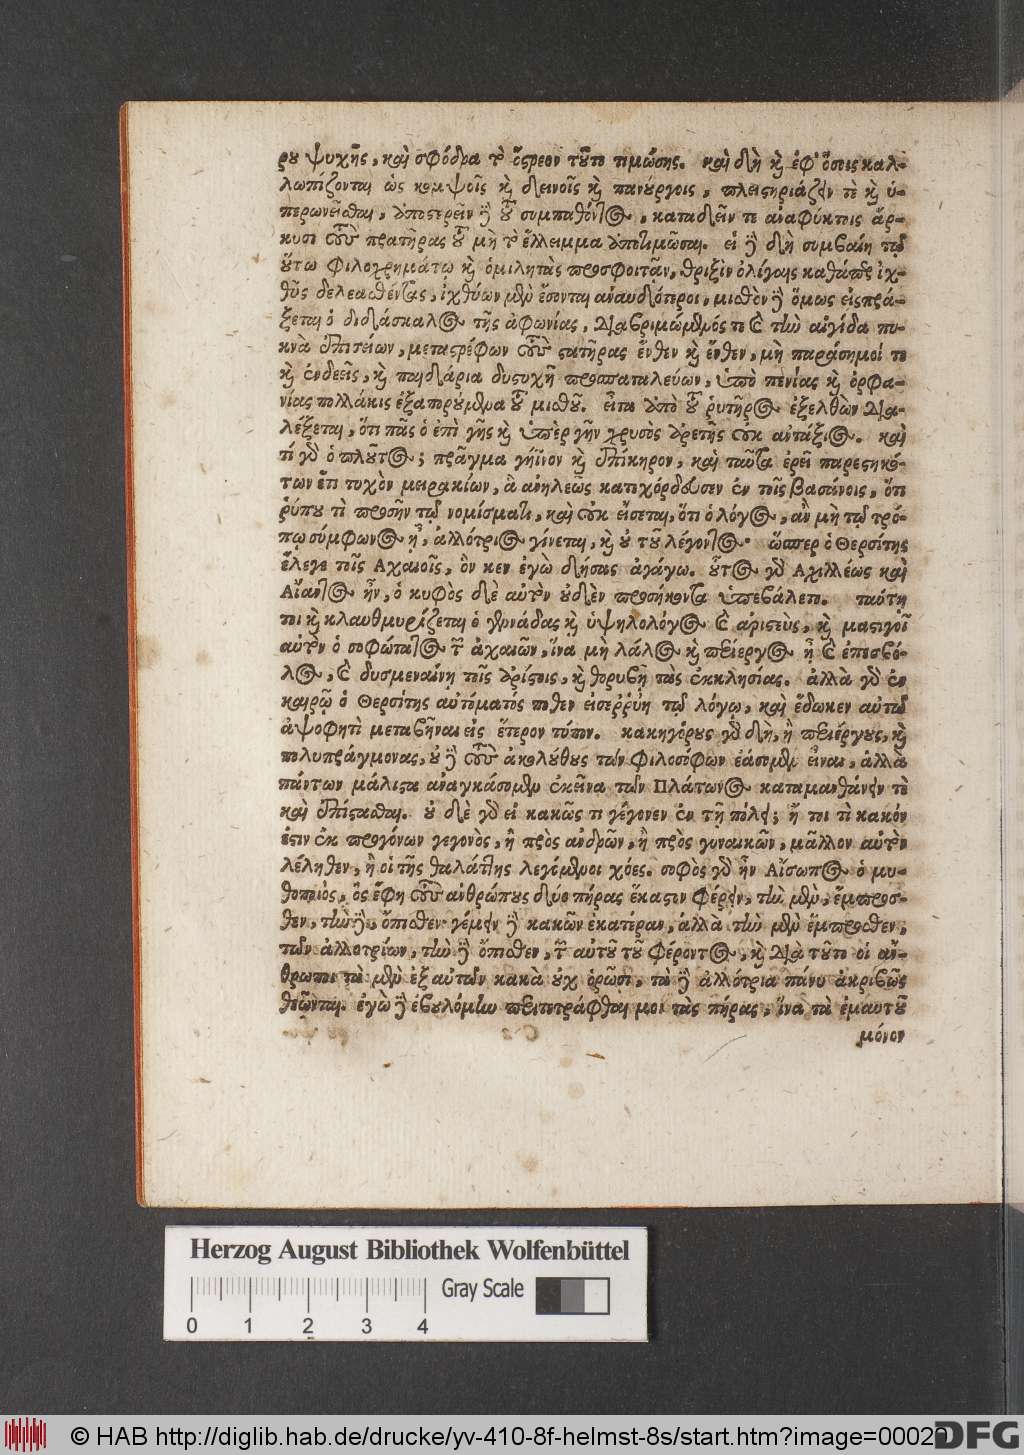 ρου ψυχῆς, καὶ σφόδρα τὸ ὄστρεον τοῦτο τιμώσης. καὶ δὴ καὶ ἐφ' ὅσοις καλ-
λωπίζονται ὡς κομψοῖς καὶ δεινοῖς καὶ πανούργοις, πλειστηριάζειν τε καὶ ὑ-
περωνεῖσθαι, ἀποστερεῖν δὲ τοῦ συμπαθόντος, καταδεῖν τε ἀναφύκτοις ἄρ-
κυσι τοὺς πρατῆρας τοῦ μὴ τὸ ἔλλειμμα ἐπιτιμῶσαι. εἰ δὲ δὴ συμβαίη τῷ
οὕτω φιλοχρημάτῳ καὶ ὁμιλητὰς προσφοιτᾶν, θριξὶν ὀλίγαις καθάπερ ἰχ-
θῦς δελεασθέντας, ἰχθύων μὲν ἔσονται ἀναυδότεροι, μισθὸν δὲ ὅμως εἰσπρά-
ξεται ὁ διδάσκαλος τῆς ἀφωνίας, διαβριμώμενός τε καὶ τὴν αἰγίδα πυ-
κνὰ ἐπισείων, μεταστρέφων τοὺς στατῆρας ἔνθεν καὶ ἔνθεν, μὴ παράσημοί τε
καὶ ἐνδεεῖς, καὶ παιδάρια δυστυχῆ προπαταλεύων, ὑπὸ πενίας καὶ ὀρφα-
νίας πολλάκις ἐξαπορούμενα τοῦ μισθοῦ. εἶτα ἀπὸ τοῦ ῥυτῆρος ἐξελθὼν δια-
λέξεται, ὅτι πᾶς ὁ ἐπὶ γῆς καὶ ὑπὲρ γῆν χρυσὸς ἀρετῆς οὐκ αὐτάξιος. καὶ
τί γὰρ ὁ πλοῦτος; πρᾶγμα γήϊνον καὶ ἐπίκηρον, καὶ ταῦτα ἐρεῖ παρεστηκό-
των ἔτι τυχὸν μειρακίων, ἃ ἀνηλεῶς κατεχόρδευσεν ἐν τοῖς βασάνοις, ὅτι
ῥύπου τὶ προσῆν τῷ νομίσματι, καὶ οὐκ εἴσεται, ὅτι ὁ λόγος, ἂν μὴ τῷ τρό-
πῳ σύμφωνος ᾖ, ἀλλότριος γίνεται, καὶ οὐ τοῦ λέγοντος. ὥσπερ ὁ Θερσίτης
ἔλεγε τοῖς Ἀχαιοῖς, ὅν κεν ἐγὼ δήσας ἀγάγω. οὗτος γὰρ Ἀχιλλέως καὶ
Αἴαντος ἦν, ὁ κυφὸς δὲ αὐτὸν οὐδὲν προσήκοντα ὑπεβάλετο. ταύτη
τοι καὶ κλαυθμυρίζεται ὁ γεννάδας καὶ ὑψηλολόγος καὶ ἀριστεὺς, καὶ μαστιγοῖ
αὐτὸν ὁ σοφώτατος τῶν ἀχαιῶν, ἵνα μὴ λάλος καὶ περίεργος ᾖ καὶ ἐπεσβό-
λος, καὶ δυσμεναίνῃ τοῖς ἀρίστοις, καὶ θορυβῇ τὰς ἐκκλησίας. ἀλλὰ γὰρ ἐν
καιρῷ ὁ Θερσίτης αὐτόματός ποθεν εἰσεῤῥύη τῷ λόγῳ, καὶ ἔδωκεν αὐτῷ
ἀψοφητὶ μεταβῆναι εἰς ἕτερον τόπον. κακηγόρους γὰρ δὴ, ἢ περιέργους, καὶ
πολυπράγμονας, οὐ δὲ τοὺς ἀκολούθους τῶν φιλοσόφων ἐάσομεν εἶναι, ἀλλὰ
πάντων μάλιστα ἀναγκάσομεν ἐκεῖνα τῶν Πλάτωνος καταμανθάνειν τὲ
καὶ ἐπίστασθαι. οὐ δὲ γὰρ εἰ κακῶς τι γέγονεν ἐν τῇ πόλει; ἤ τοι τὶ κακόν
ἐστιν ἐκ προγόνων γεγονὸς, ἢ πρὸς ἀνδρῶν, ἢ πρὸς γυναικῶν, μᾶλλον αὐτὸν
λέληθεν, ἢ οἱ τῆς θαλάττης λεγόμενοι χόες. σοφὸς γὰρ ἦν Αἴσωπος ὁ μυ-
θοποιὸς, ὃς ἔφη τοὺς ἀνθρώπους δύο πήρας ἕκαστον φέρειν, τὴν μὲν, ἔμπροσ-
θεν, τὴν δὲ, ὄπισθεν· γέμειν δὲ κακῶν ἑκατέραν, ἀλλὰ τὴν μὲν ἔμπροσθεν,
τῶν ἀλλοτρίων, τὴν δὲ ὄπισθεν, τῶν αὐτοῦ τοῦ φέροντος, καὶ διὰ τοῦτο οἱ ἄν-
θρωποι τὰ μὲν ἐξ αὐτῶν κακὰ οὐχ ὁρῶσι, τὰ δὲ ἀλλότρια πάνυ ἀκριβῶς
θεῶνται. ἐγὼ δὲ ἐβουλόμην περιτετράφθαι μοι τὰς πήρας, ἵνα τὰ ἐμαυτοῦ
μόνον
Herzog August Bibliothek Wolfenbüttel
Gray Scale
0 1 2 3 4
© HAB http://diglib.hab.de/drucke/yv-410-8f-helmst-8s/start.htm?image=00020
DFG